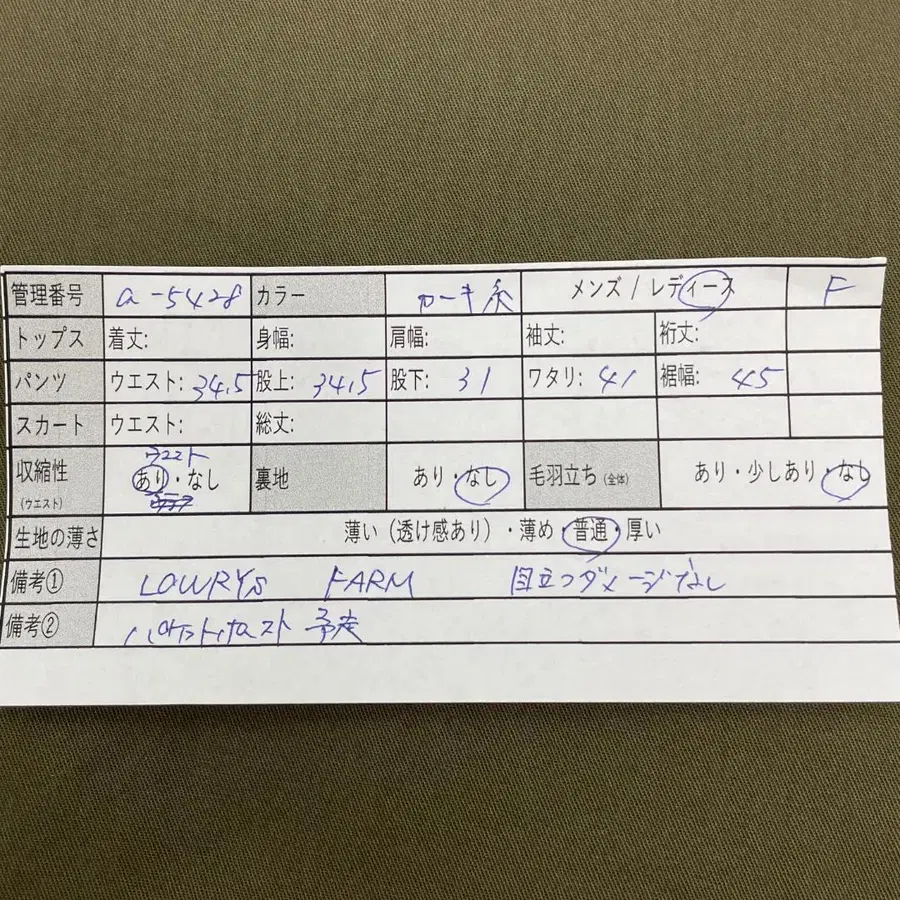 管理番号 a-5428 カラー カーキ系 メンズ / レディース F
トップス 着丈: 身幅: 肩幅: 袖丈: 裄丈:
パンツ ウエスト: 34.5 股上: 34.5 股下: 31 ワタリ: 41 裾幅: 45
スカート ウエスト: 総丈:
ウエスト
収縮性 あり・なし 裏地 あり・なし 毛羽立ち (全体) あり・少しあり・なし
(ウエスト)
生地の薄さ 薄い（透け感あり）・薄め・普通・厚い
備考① LOWRYS FARM 目立つダメージなし
備考②